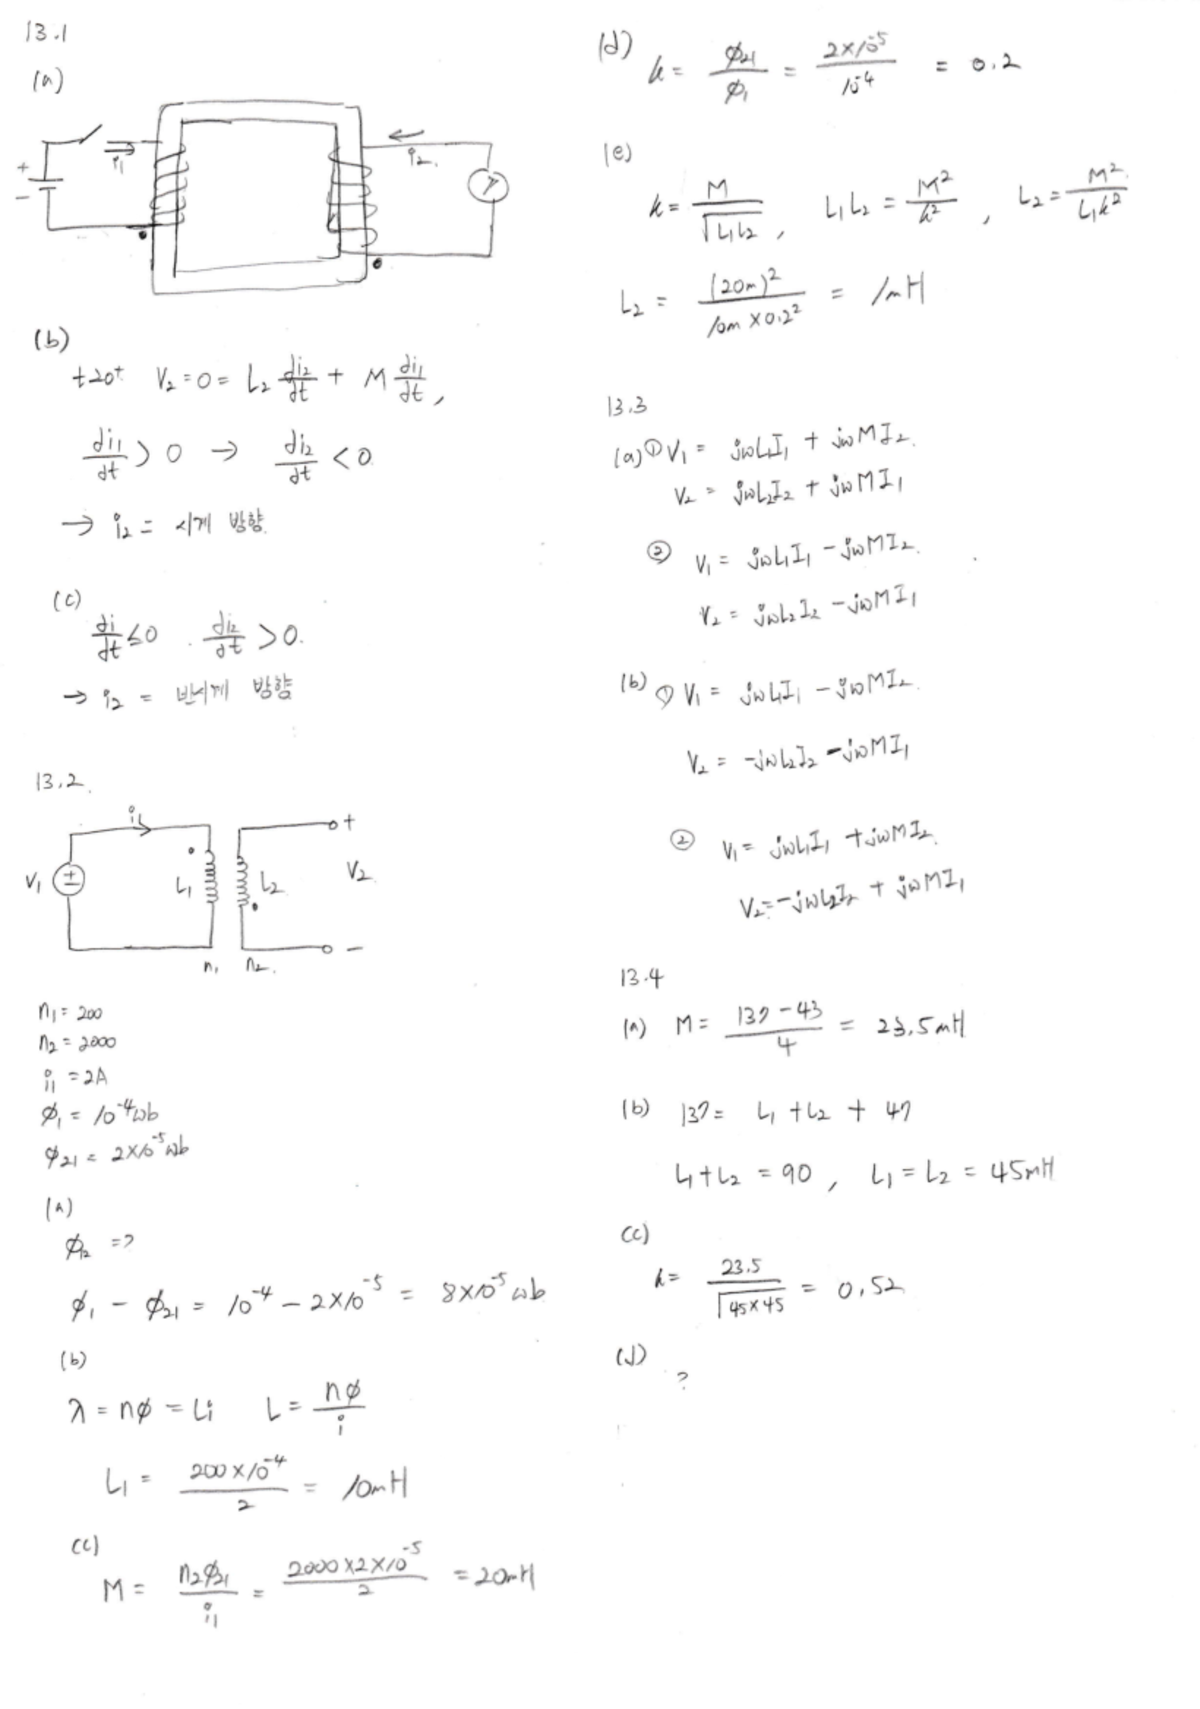 13.1
(a)
+
-
i₁
i₂
(b)
t≥0⁺ V₂ = 0 = L₂ di₂/dt + M di₁/dt,
di₁/dt > 0 → di₂/dt < 0.
→ i₂ = 시계 방향.
(c)
di/dt ≤ 0 . di₂/dt > 0.
→ i₂ = 반시계 방향
13.2.
i₁
V₁ ± L₁ L₂ + V₂ -
n₁ n₂.
n₁ = 200
n₂ = 2000
i₁ = 2A
ϕ₁ = 10⁻⁴wb
ϕ₂₁ = 2×10⁻⁵wb
(a)
ϕ₁₂ = ?
ϕ₁ - ϕ₂₁ = 10⁻⁴ - 2×10⁻⁵ = 8×10⁻⁵ wb
(b)
λ = nϕ = Li L = nϕ/i
L₁ = 200×10⁻⁴/2 = 10mH
(c)
M = n₂ϕ₂₁/i₁ = 2000×2×10⁻⁵/2 = 20mH
(d)
k = ϕ₂₁/ϕ₁ = 2×10⁻⁵/10⁻⁴ = 0.2
(e)
k = M/√L₁L₂ , L₁L₂ = M²/k² , L₂ = M²/L₁k²
L₂ = (20m)²/10m×0.2² = 1mH
13.3
(a) ① V₁ = jωL₁I₁ + jωMI₂.
V₂ = jωL₂I₂ + jωMI₁
② V₁ = jωL₁I₁ - jωMI₂.
V₂ = jωL₂I₂ - jωMI₁
(b) ① V₁ = jωL₁I₁ - jωMI₂.
V₂ = -jωL₂I₂ - jωMI₁
② V₁ = jωL₁I₁ + jωMI₂.
V₂ = -jωL₂I₂ + jωMI₁
13.4
(a) M = 137-43/4 = 23.5mH
(b) 137 = L₁ + L₂ + 47
L₁+L₂ = 90 , L₁ = L₂ = 45mH
(c)
k = 23.5/√45×45 = 0.52
(d)
?